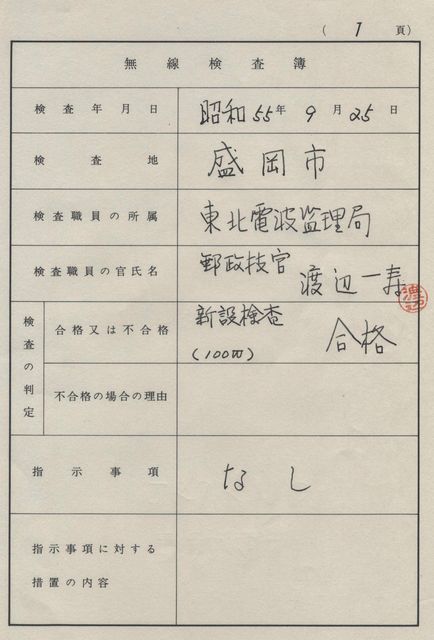 ( 1 頁)
無線検査簿
検査年月日 昭和55年9月25日
検査地 盛岡市
検査職員の所属 東北電波監理局
検査職員の官氏名 郵政技官 渡辺一寿
検査の判定
合格又は不合格 新設検査 合格
(100W)
不合格の場合の理由
指示事項 なし
指示事項に対する
措置の内容